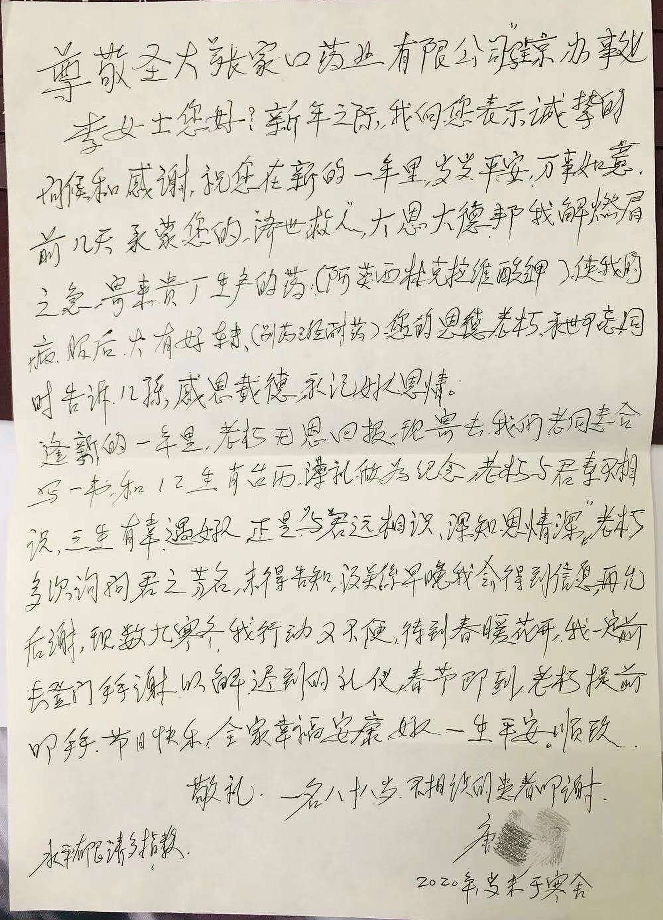 尊敬圣大张家口药业有限公司"驻京办事处
李女士您好？新年之际，我向您表示诚挚的
问候和感谢，祝您在新的一年里，岁岁平安，万事如意，
前几天承蒙您的，济世救人，大恩大德帮我解燃眉
之急，寄来贵厂生产的药，（阿莫西林克拉维酸钾）使我的
病，服后，大有好转，您的恩德老朽，永世不忘，同
时告诉儿孙，感恩戴德，永记好人恩情。
逢新的一年里，老朽无恩回报，现寄去，我们老同志合
写一书，和12生肖台历，薄礼做为纪念，老朽与君素不相
识，三生有幸，遇好人，正是"与君远相识，深知恩情深"，老朽
多次询问君之芳名，未得告知，没关係早晚我会得到信息，再先
后谢，现数九寒冬，我行动又不便，待到春暖花开，我一定前
去登门拜谢以解迟到的礼仪，春节即到，老朽提前
叩拜，节日快乐，全家幸福安康，好人一生平安。顺致
敬礼。一名八十八岁，不相识的患者叩谢。
唐
水平有限请多指教。
2020年岁末于寒舍